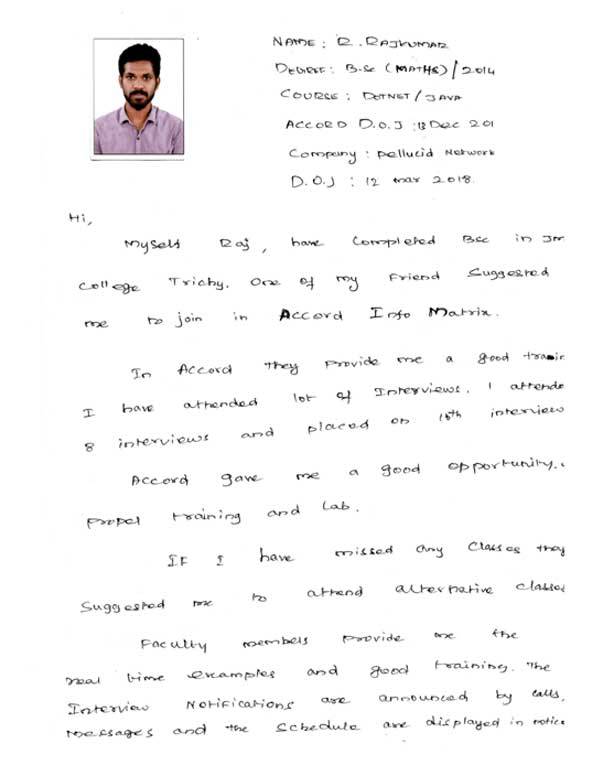 NAME : R. RAJKUMAR
DEGREE : B.Sc (MATHS) / 2014
COURSE : DOTNET / JAVA
ACCORD D.O.J : 13 Dec 201
Company : pellucid Network
D.O.J : 12 mar 2018.
Hi,
Myself Raj, have completed Bsc in Jm
college Trichy. One of my Friend Suggested
me to join in Accord Info Matrix.
In Accord they provide me a good
I have attended lot of Interviews. I attende
8 interviews and placed on interview
Accord gave me a good opportunity..
proper training and Lab.
IF I have missed any classes they
Suggested me to attend alternative classes
Faculty members provide me the
real time examples and good training. The
Interview Notifications are announced by calls,
messages and the schedule are displayed in notice